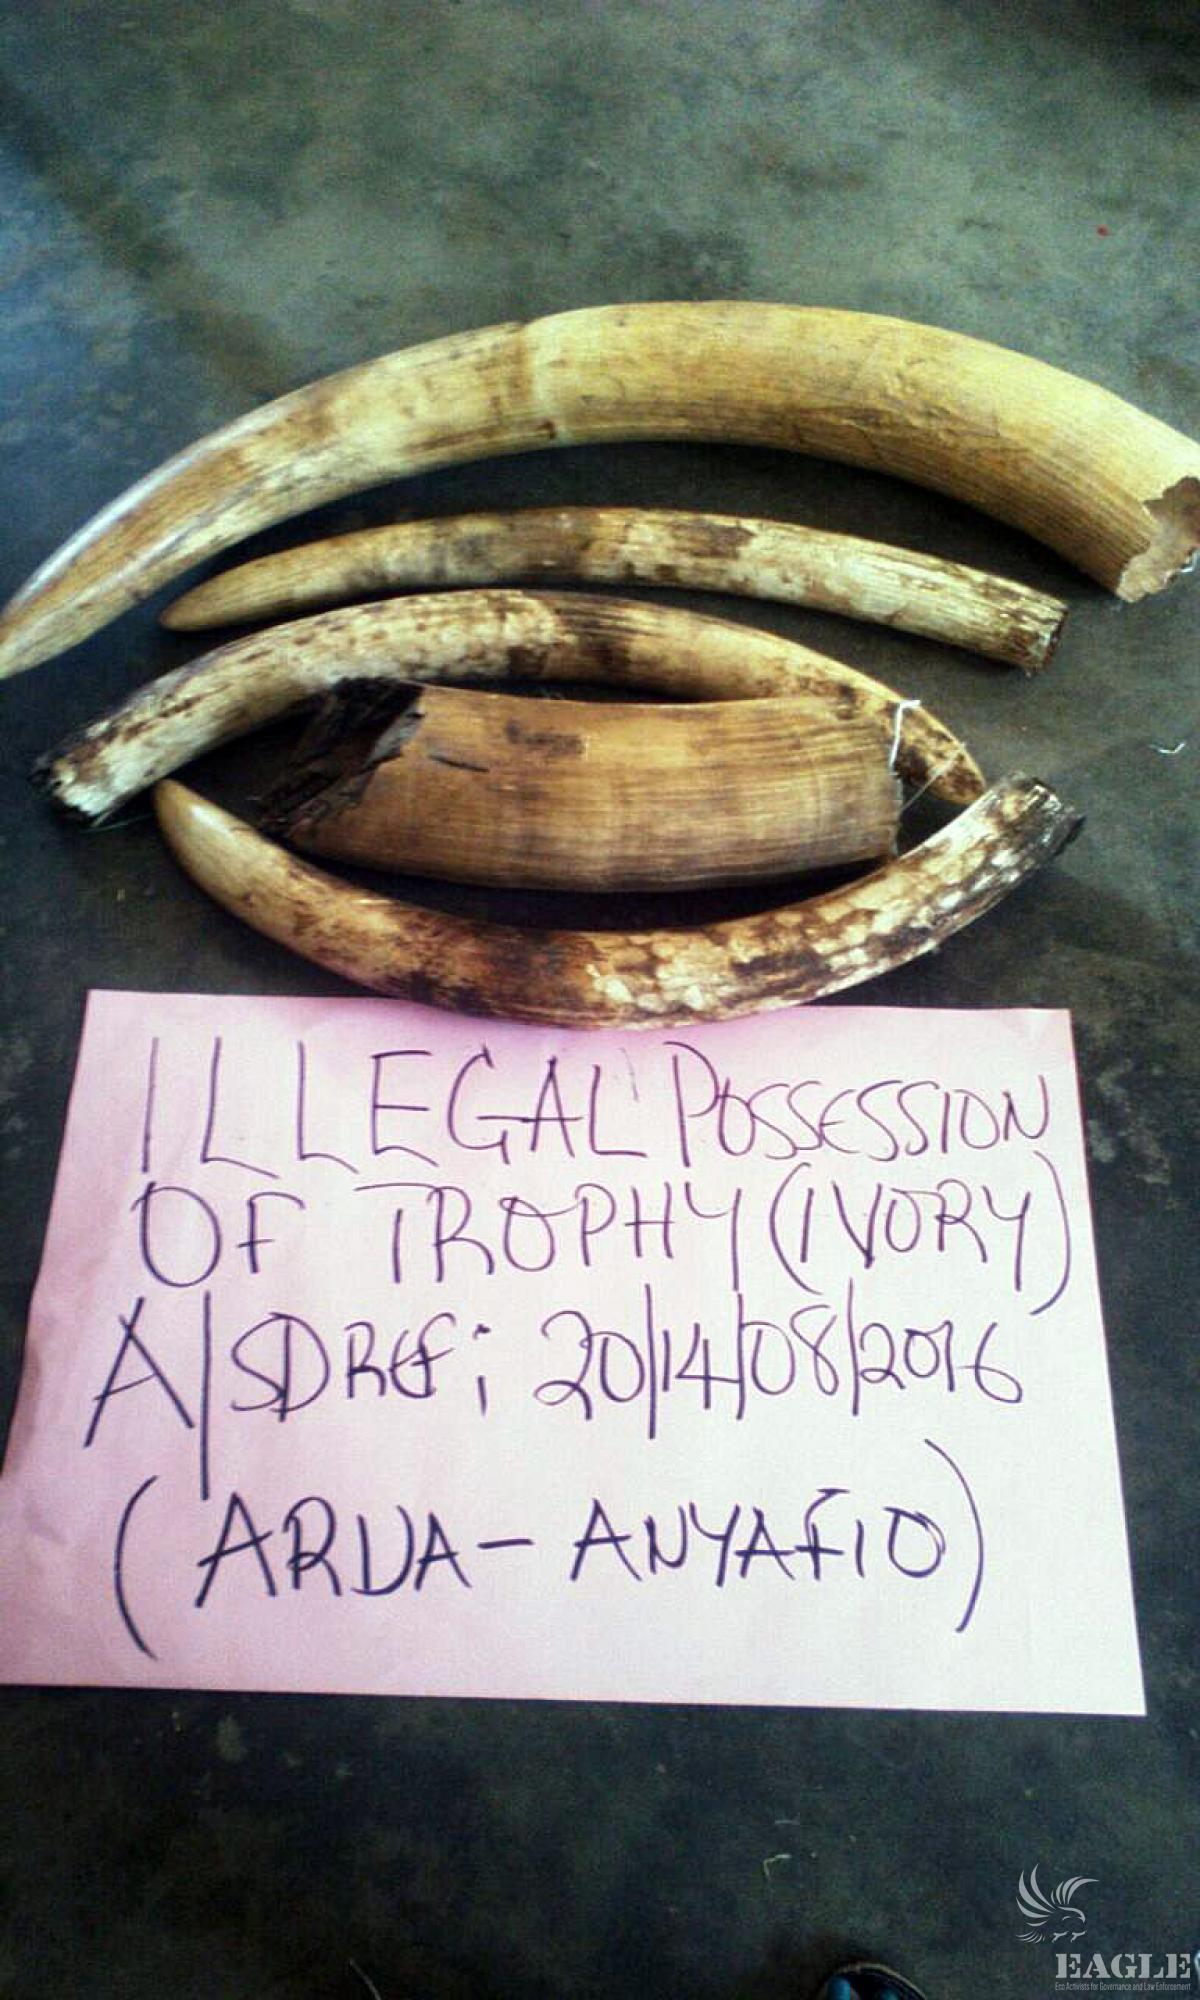 ILLEGAL POSSESSION
OF TROPHY (IVORY)
A/SD REF; 20/14/08/2016
(ARUA- ANYAFIO)
EAGLE
Eco Activists for Governance and Law Enforcement